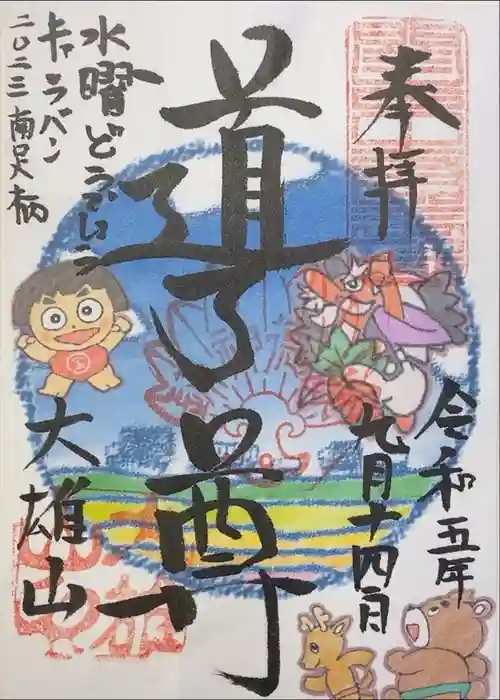 奉拝
道了尊
令和五年
九月十四日
大雄山
水曜どうでしょう
キャラバン
二〇二三南足柄